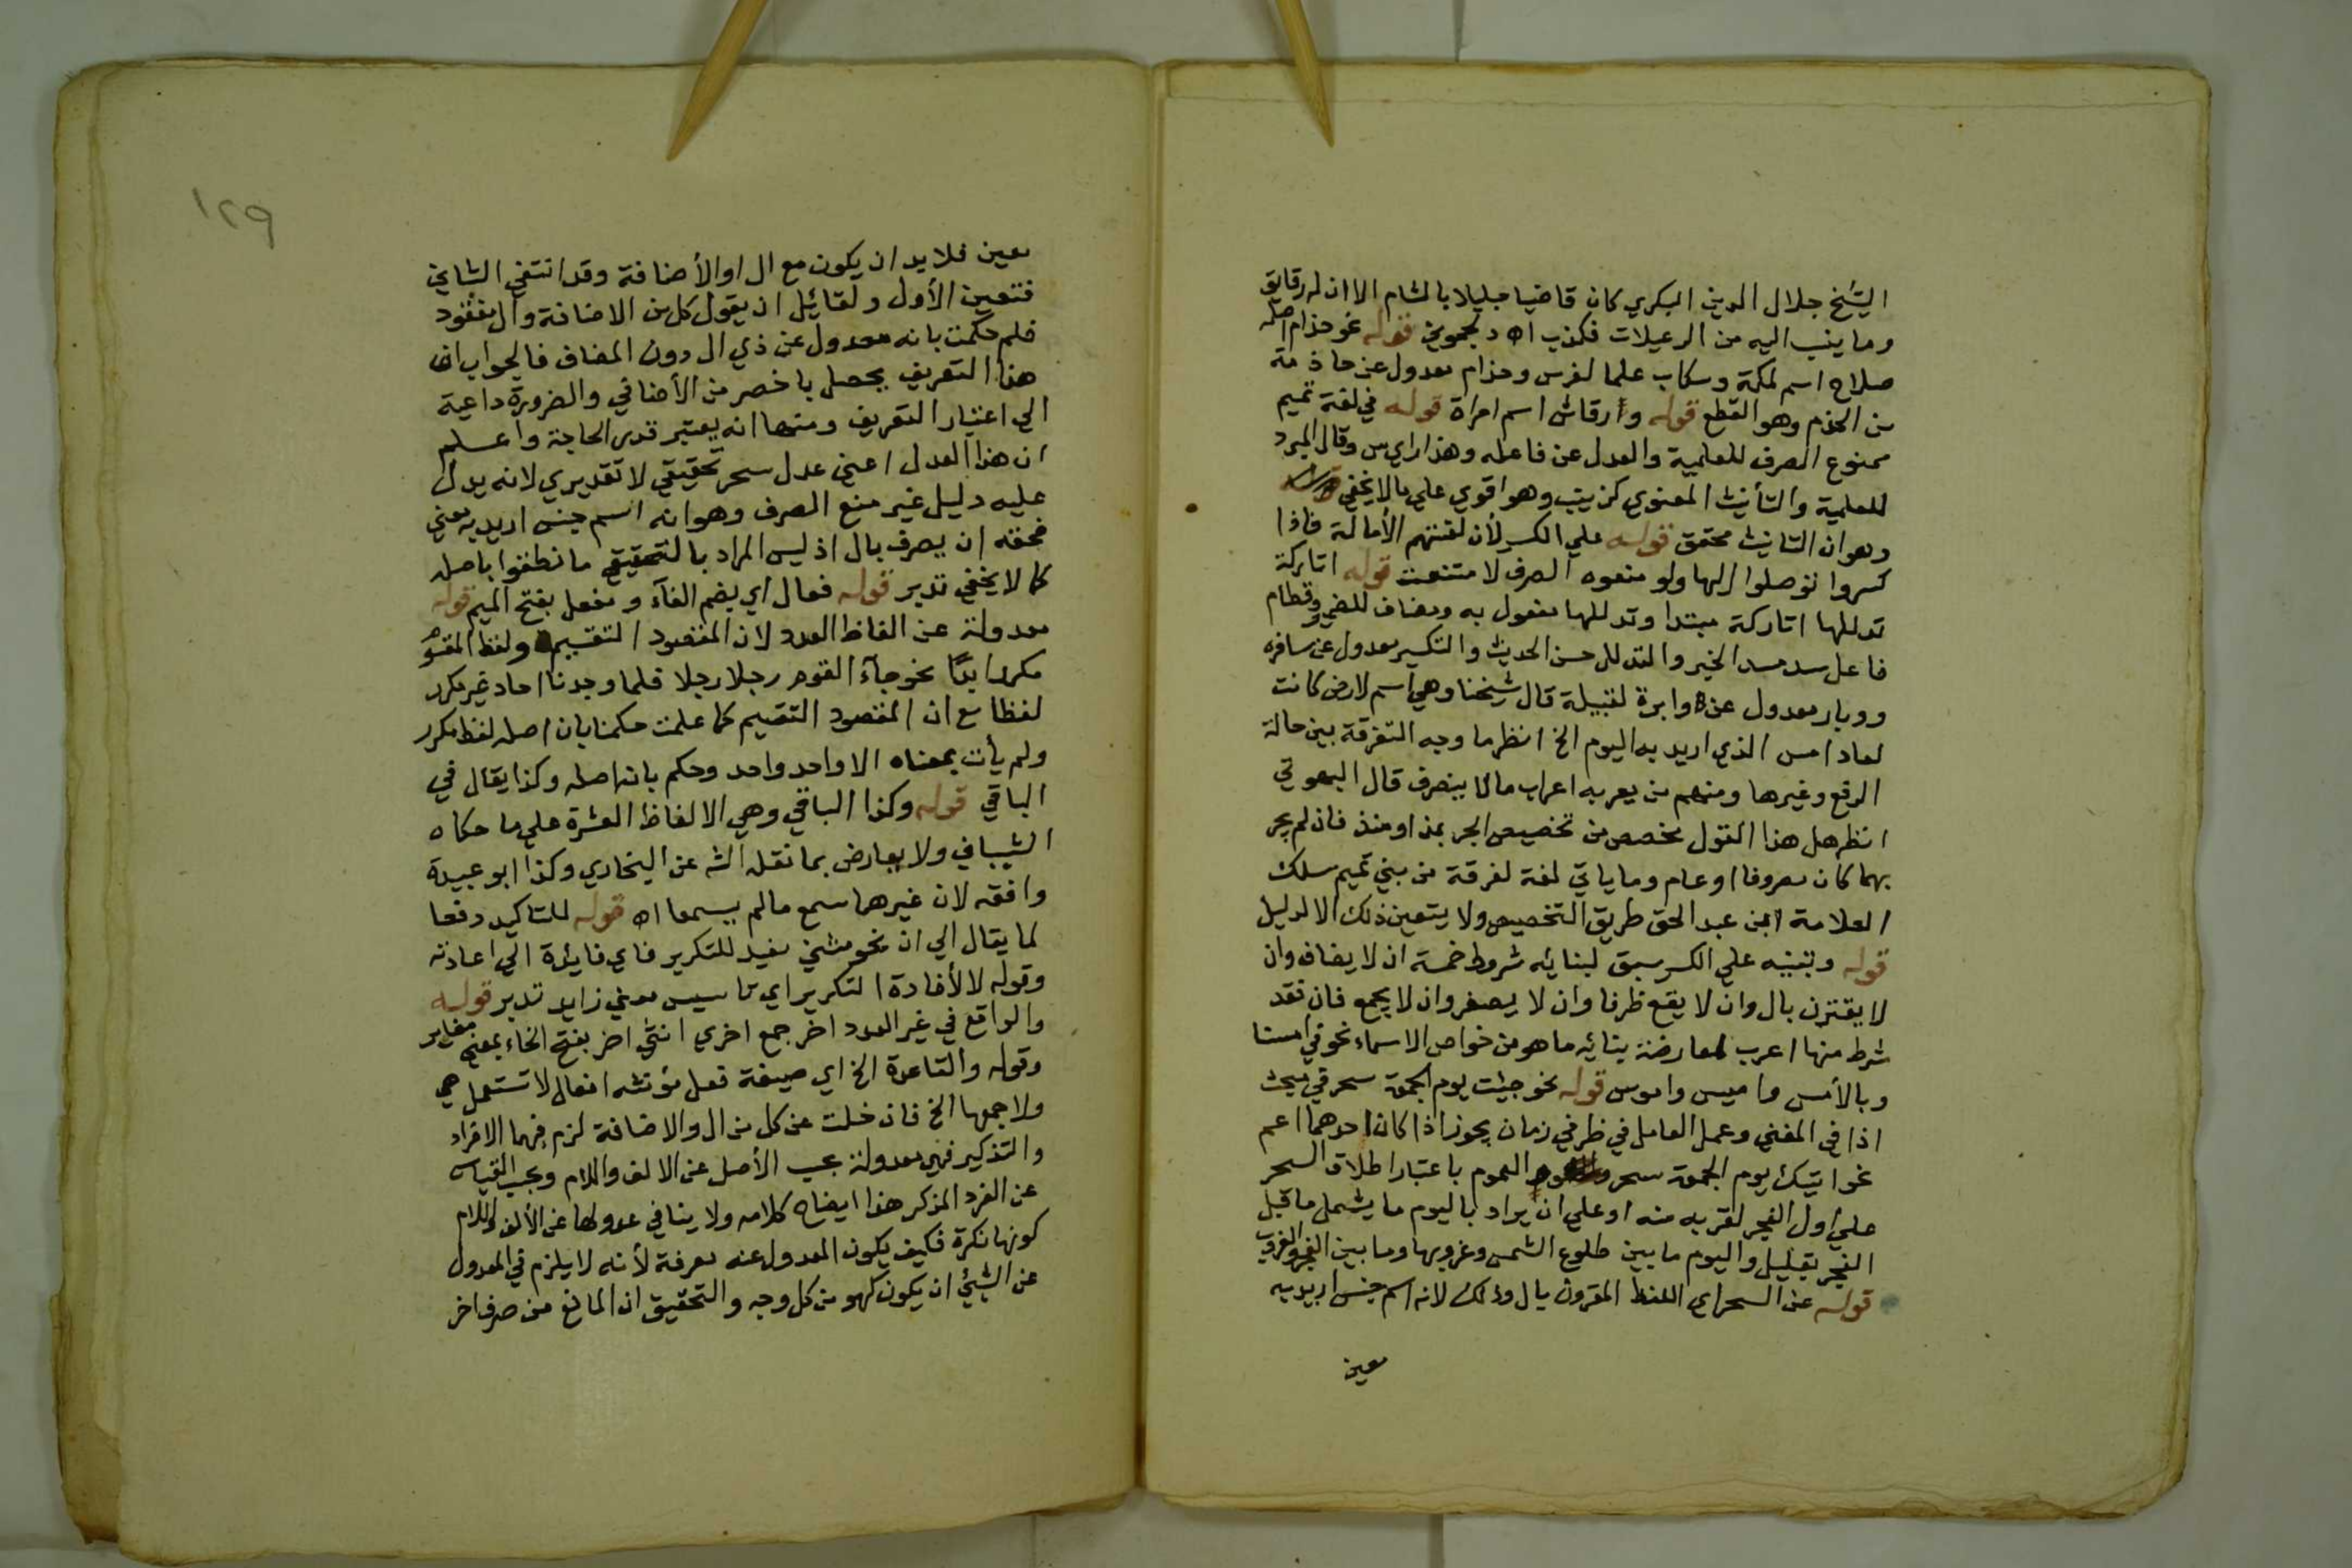 الشيخ جلال الدين البكري كان قاضيا جليلا بالشام الا ان له رقايق
وما ينسب اليه من الرعيلات فكذب اه دلجموني قوله نحو حذام اصله
صلاح اسم لمكة وسكاب علما لفرس وحذام معدول عن حاذمة
من الحذم وهو القطع قوله وارقاش اسم امراة قوله في لغة تميم
ممنوع الصرف للعلمية والعدل عن فاعله وهذا راي س وقال المبرد
للعلمية والتأنيث المعنوي كزينب وهو اقوي علي ما لا يخفي
وهو ان التانيث محقق قوله علي الكسر لأن لغتهم الأمالة فاذا
كسروا توصلوا اليها ولو منعوه الصرف لامتنعت قوله اتاركة
تدللها اتاركة مبتدا وتدللها مفعول به ومضاف للضمير وقطام
فاعل سد مسد الخبر والتدلل حسن الحديث والتكسير معدول عن سافره
ووبار معدول عن وابرة لقبيلة قال شيخنا وهي اسم لارض كانت
لعاد امس الذي اريد به اليوم الخ انظر ما وجه التفرقة بين حالة
الرفع وغيرها ومنهم من يعربه اعراب مالا ينصرف قال البهوتي
انظر هل هذا القول مخصص من تخصيص الجر بمذ او منذ فان لم يجر
بهما كان معروفا او عام وما ياتي لغة لفرقة من بني تميم سلك
العلامة ابن عبد الحق طريق التخصيص ولا يتعين ذلك الا لدليل
قوله وبنيه علي الكسر سبق لبنائه شروط خمسة ان لا يضاف وان
لا يقترن بال وان لا يقع ظرفا وان لا يصغر وان لا يجمع فان فقد
شرط منها اعرب لمعارضة بنائه ما هو من خواص الاسماء نحو في امسنا
وبالأمس واميس واموس قوله نحو جئت يوم الجمعة سحر في مبحث
اذا في المغني وعمل العامل في ظرفي زمان يجوز اذا كان احدهما اعم
نحو اتيتك يوم الجمعة سحر العموم باعتبار اطلاق السحر
علي اول الفجر لقربه منه او علي ان يراد باليوم ما يشمل ما قبل
الفجر بقليل واليوم ما بين طلوع الشمس وغروبها وما بين الفجر والغروب
قوله عن السحر اي اللفظ المقرون بال وذلك لانه اسم جنس اريد به
معين
١٢٩
معين فلا بد ان يكون مع ال او الأضافة وقد انتفي الثاني
فتعين الأول ولقائل ان يقول كل من الاضافة وال مفقود
فلم حكمت بانه معدول عن ذي ال دون المضاف فالجواب ان
هذا التعريف يحصل باخصر من الأضافي والضرورة داعية
الي اعتبار التعريف ومتمها انه يعتبر قدر الحاجة واعلم
ان هذا العدل اعني عدل سحر تحقيقي لا تقديري لانه يدل
عليه دليل غير منع الصرف وهو انه اسم جنس اريد به معين
فحقه ان يعرف بال اذ ليس المراد بالتحقيقي ما نطقوا باصله
كما لا يخفي تدبر قوله فعال اي بضم الفآء ومفعل بفتح الميم قوله
معدولة عن الفاظ العدد لان المقصود التقسيم ولفظ المقسوم
مكرر ابدًا نحو جآء القوم رجلا رجلا فلما وجدنا احاد غير مكرر
لفظا مع ان المقصود التقسيم كما علمت حكمنا بان اصله لفظ مكرر
ولم يأت بمعناه الا واحد واحد وحكم بانه اصله وكذا يقال في
الباقي قوله وكذا الباقي وهي الالفاظ العشرة علي ما حكاه
الشيباني ولا يعارض بما نقله الش عن البخاري وكذا ابو عبيدة
وافقه لان غيرهما سمع مالم يسمعا اه قوله للتاكيد دفعا
لما يقال الي ان نحو مثني مفيد للتكرير فاي فايدة الي اعادته
وقوله لا لأفادة التكرير اي تاسيس معني زايد تدبر قوله
والواقع في غير العدد اخر جمع اخري انثي اخر بفتح الخاء بمعني مغاير
وقوله والقاعدة الخ اي صيغة فعل مؤنثه افعال لا تستعمل هي
ولا جمعها الخ فان خلت عن كل من ال والاضافة لزم فيها الافراد
والتذكير فهي معدولة بحسب الأصل عن الالف واللام وبحسب القياس
عن الفرد المذكر هذا ايضاح كلامه ولا ينافي عدولها عن الألف واللام
كونها نكرة فكيف يكون المعدول عنه معرفة لأنه لا يلزم في المعدول
عن الشيئ ان يكون كهو من كل وجه والتحقيق ان المانع من صرف اخر